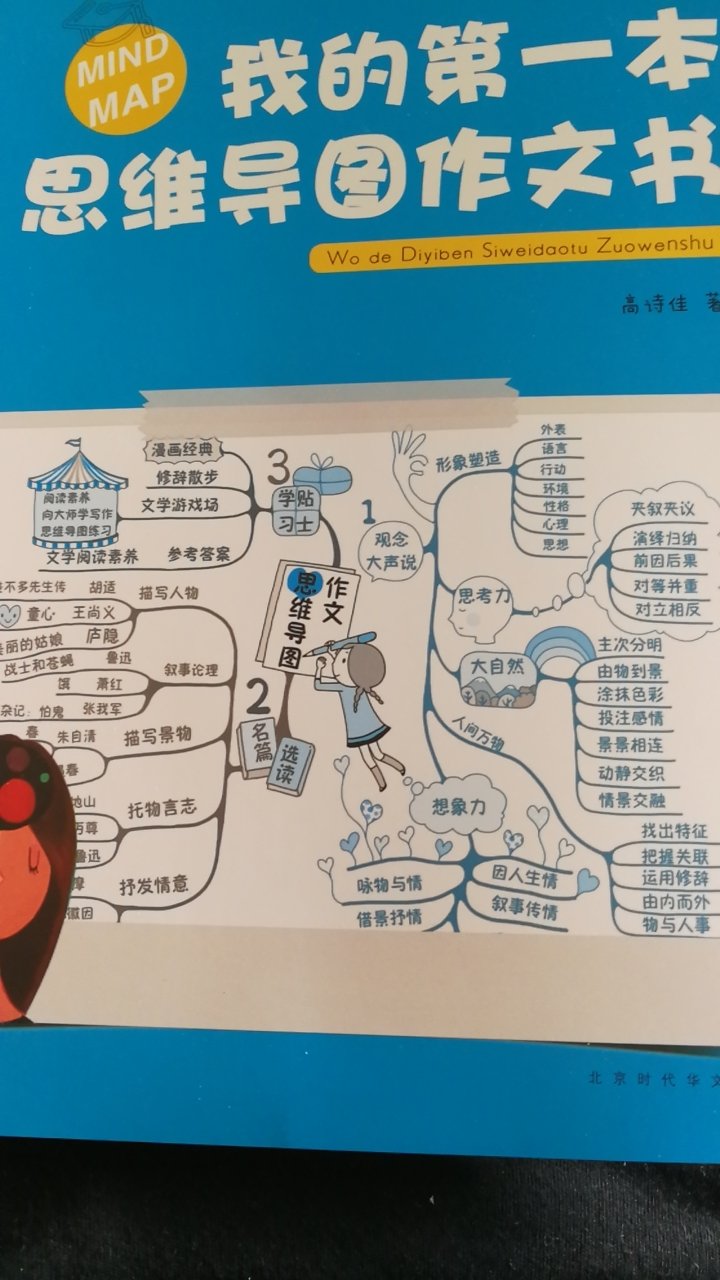 MIND
MAP
我的第一本
思维导图作文书
Wo de Diyiben Siweidaotu Zuowenshu
高诗佳 著
作文
思维导图
1
观念
大声说
形象塑造
外表
语言
行动
环境
性格
心理
思想
思考力
夹叙夹议
演绎归纳
前因后果
对等并重
对立相反
大自然
主次分明
由物到景
涂抹色彩
投注感情
景景相连
动静交织
情景交融
人间万物
找出特征
把握关联
运用修辞
由内而外
物与人事
想象力
咏物与情
借景抒情
因人生情
叙事传情
2
名篇
选读
描写人物
不多先生传 胡适
童心 王尚义
丽的姑娘 庐隐
叙事论理
战士和苍蝇 鲁迅
饿 萧红
杂记：怕鬼 张我军
描写景物
春 朱自清
春
托物言志
山
尊
鲁迅
抒发情意
因
3
学习
贴士
漫画经典
修辞散步
文学游戏场
阅读素养
向大师学写作
思维导图练习
文学阅读素养 参考答案
北京时代华文